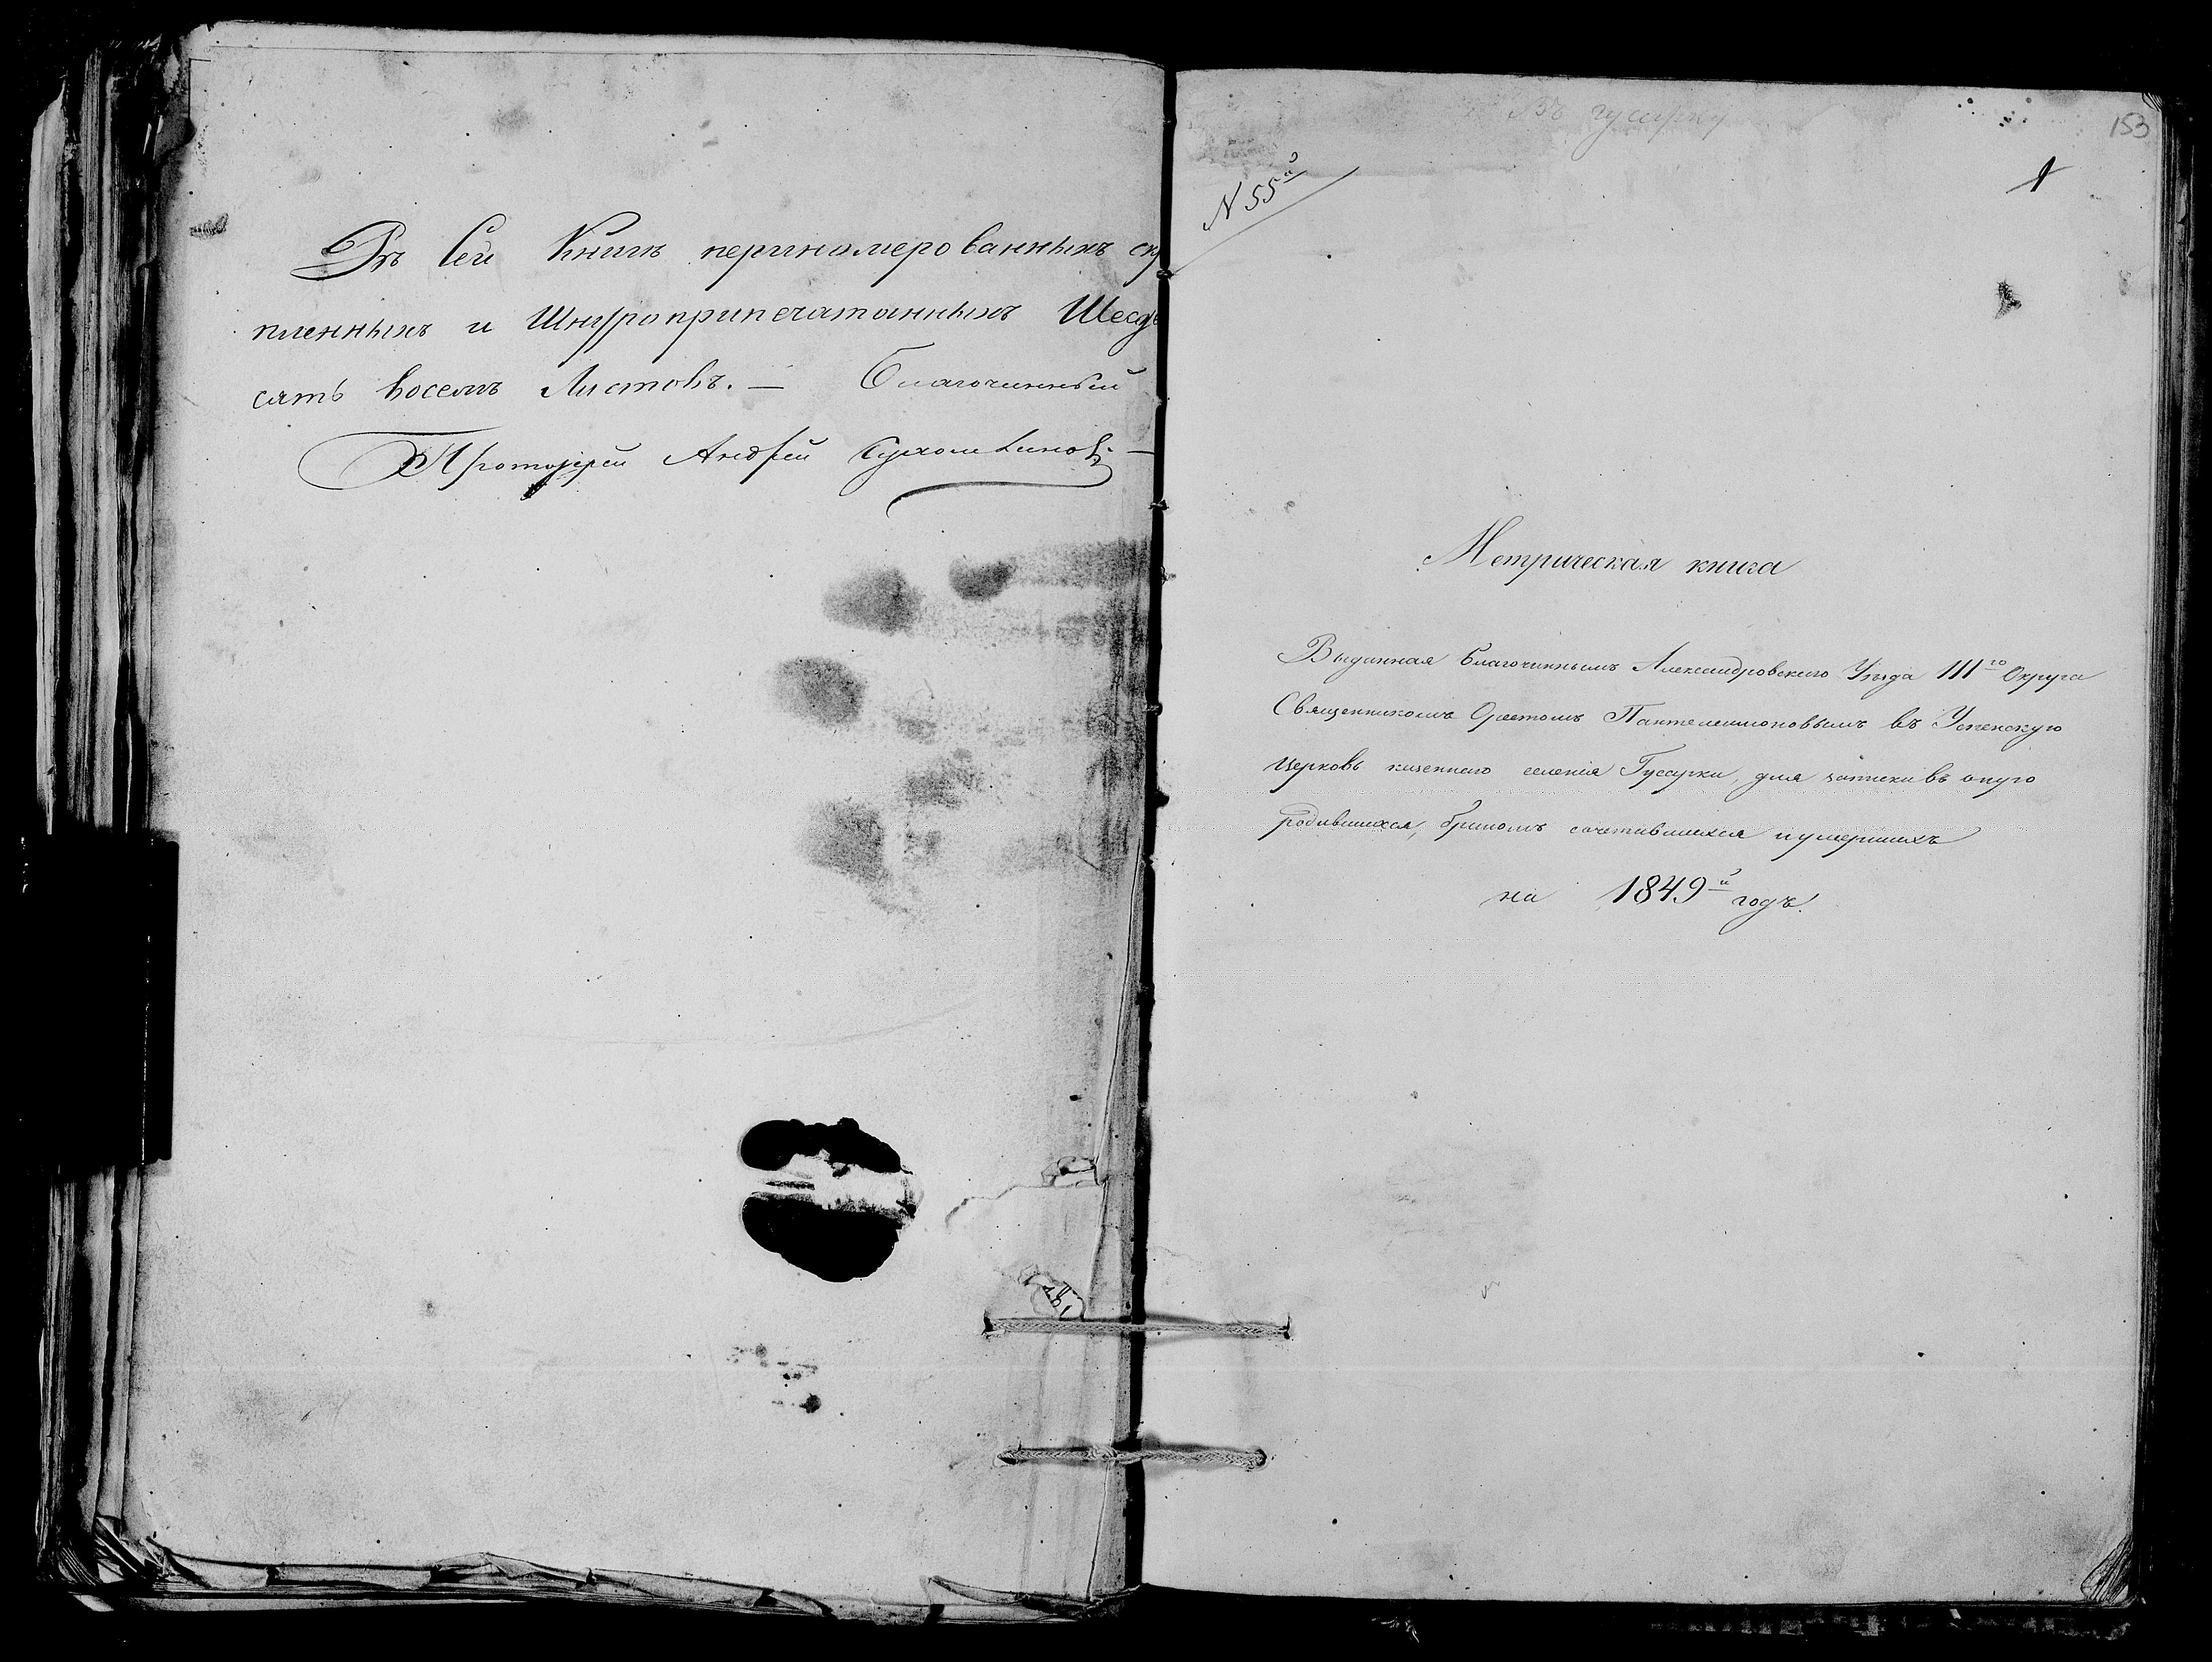 Въ Сей Книгѣ перенумерованныхъ скр
пленныхъ и Шнуроприпечатанныхъ Шесдѣ
сятъ восемъ Листовъ. — Благочинный
Протоіерей Андрей Сухомлиновъ —
Въ гусарку
153
1
N 55й
Метрическая книга
Выданная благочиннымъ Александровского Уѣзда III го Округа
Священникомъ Орестомъ Пантелеимоновымъ въ Успенскую
Церковь казеннаго селенія Гусарки, для записки въ оную
родившихся, бракомъ сочетавшихся и умершихъ
на 1849й годъ.